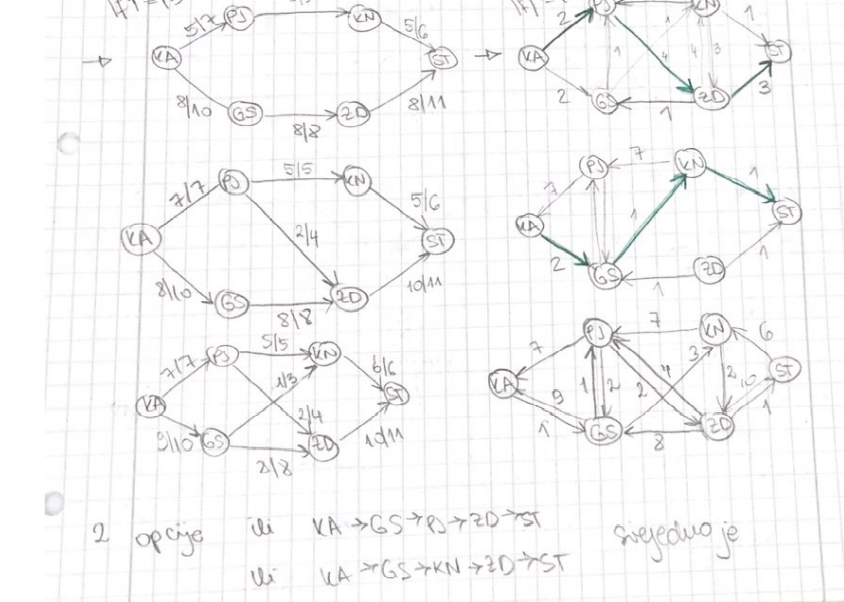 5/7 PJ KN 5/6
KA ST
8/10 GS 8/8 ZD 8/11
2 PJ 1 KN 1
KA 1 4 4 3 ST
2 GS 1 ZD 3
7/7 PJ 5/5 KN 5/6
KA 2/4 ST
8/10 GS 8/8 ZD 10/11
PJ 7 KN 1
7 KA 1 ST
2 GS 1 ZD 1
7/7 PJ 5/5 KN 6/6
KA 1/3 2/4 ST
9/10 GS 8/8 ZD 10/11
PJ 7 KN 6
7 KA 9 1 2 2 4 3 2 10 ST
1 GS 8 ZD 1
2 opcije ili KA → GS → PJ → ZD → ST svejedno je
ili KA → GS → KN → ZD → ST